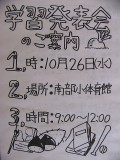 学習発表会
のご案内
1.時:10月26日(水)
2.場所:南部小体育館
3.時間:9:00~12:00